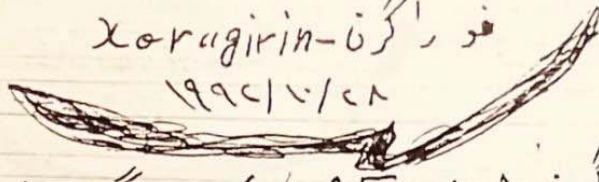 xoragirin - خوراگرن
١٩٩٢/١٠/٢٨